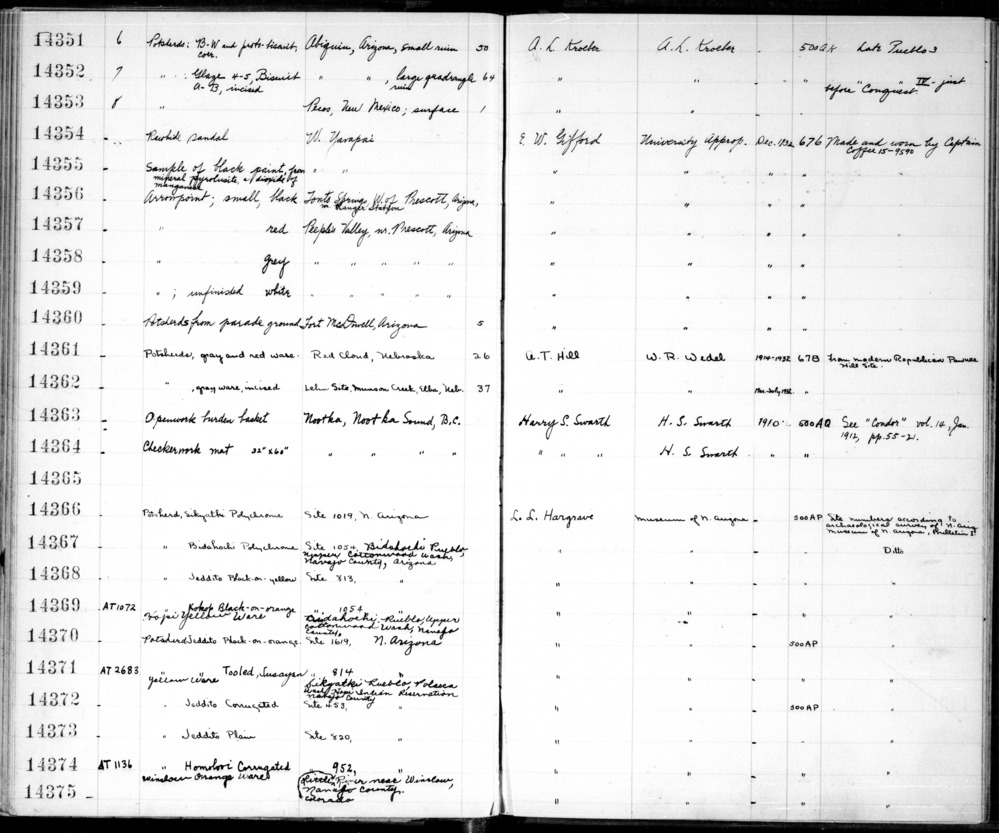 14351 6 Potsherds: B-W and proto-biscuit, corr. Abiquiu, Arizona, small ruin 30 A. L. Kroeber A. L. Kroeber - 500AH Late Pueblo 3
14352 7 " : Glaze 4-5, Biscuit A-B, incised " " , large quadrangle ruin 64 " " " " before "Conquest" IV - just
14353 8 " Pecos, New Mexico; surface 1 " " - "
14354 - Rawhide sandal W. Yavapai E. W. Gifford University Approp. Dec. 1932 676 Made and worn by Captain Coffee 15-9590
14355 - Sample of black paint, from mineral pyrolusite, a/ dioxide of manganese " " " " " " "
14356 - Arrowpoint; small, black Tonto Springs, W. of Prescott, Arizona, nr Ranger Station " " " "
14357 - " red Peeple's Valley, nr. Prescott, Arizona " " " " "
14358 - " grey " " " " " " " " " "
14359 - " ; unfinished white " " " " " " " " "
14360 - Potsherds from parade ground Fort McDowell, Arizona 5 " " " "
14361 - Potsherds, gray and red ware. Red Cloud, Nebraska 26 A. T. Hill W. R. Wedel 1914-1932 67B from modern Republican Pawnee Hill Site.
14362 - " , gray ware, incised Site, Munson Creek, Elba, Neb. 37 " " July, 1932 "
14363 - Openwork burden basket Nootka, Nootka Sound, B.C. Harry S. Swarth H. S. Swarth 1910 500AQ See "Condor" vol. 14, Jan. 1912, pp. 55-21.
14364 - Checkerwork mat 32" x 60" " " " " " " " H. S. Swarth " "
14365
14366 - Potsherd, Sikyatki Polychrome Site 1019, N. Arizona L. L. Hargrave Museum of N. Arizona - 500AP Site numbers according to archaeological survey of N. Ariz Museum of N. Arizona, Bulletin 1
14367 - " Bidahochi Polychrome Site 1054, Bidahochi Pueblo Upper Cottonwood Wash, Navajo County, Arizona " " - " Ditto
14368 - " Jeddito Black-on-yellow Site 813, " " " - " "
14369 AT 1072 " Kokop Black-on-orange Hopi Yellow Ware " 1054 Bidahochi Pueblo, Upper Cottonwood Wash, Navajo County, " " - " "
14370 - Potsherd Jeddito Black-on-orange. Site 1619, N. Arizona " " - 500AP "
14371 AT 2683 " " Tooled, Tusayan yellow ware " 814 Sikyatki Pueblo, Polacca Wash, Hopi Indian Reservation Navajo County " " - " "
14372 - " Jeddito Corrugated Site 453, " " " - 500AP "
14373 - " Jeddito Plain Site 820, " " " - " "
14374 AT 1136 " Homolovi Corrugated Winslow Orange Ware " 952, " (Little River near Winslow, Navajo County. Colorado " " - " "
14375 - " " " "